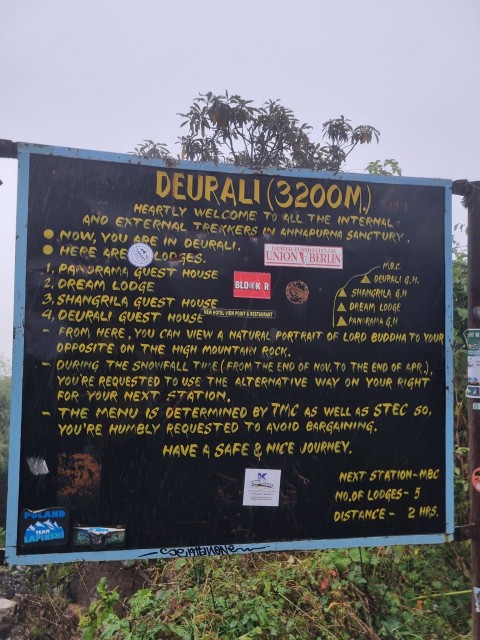 DEURALI (3200M.)
HEARTLY WELCOME TO ALL THE INTERNAL
AND EXTERNAL TREKKERS IN ANNAPURNA SANCTURY.
NOW, YOU ARE IN DEURALI.
HERE ARE LODGES.
1, PANORAMA GUEST HOUSE
2, DREAM LODGE
3, SHANGRILA GUEST HOUSE
4, DEURALI GUEST HOUSE
UNION BERLIN
BLOCK R
NEW HOTEL VIEW POINT & RESTAURANT
M.B.C.
DEURALI G.H.
SHANGRILA G.H
DREAM LODGE
PANORAMA G.H
- FROM HERE, YOU CAN VIEW A NATURAL PORTRAIT OF LORD BUDDHA TO YOUR
OPPOSITE ON THE HIGH MOUNTAIN ROCK.
- DURING THE SNOWFALL TIME (FROM THE END OF NOV. TO THE END OF APR.),
YOU'RE REQUESTED TO USE THE ALTERNATIVE WAY ON YOUR RIGHT
FOR YOUR NEXT STATION.
- THE MENU IS DETERMINED BY TMC AS WELL AS STEC SO,
YOU'RE HUMBLY REQUESTED TO AVOID BARGAINING.
HAVE A SAFE & NICE JOURNEY.
NEXT STATION - MBC
NO. OF LODGES - 5
DISTANCE - 2 HRS.
POLAND
TEAM
ZAPERSKI